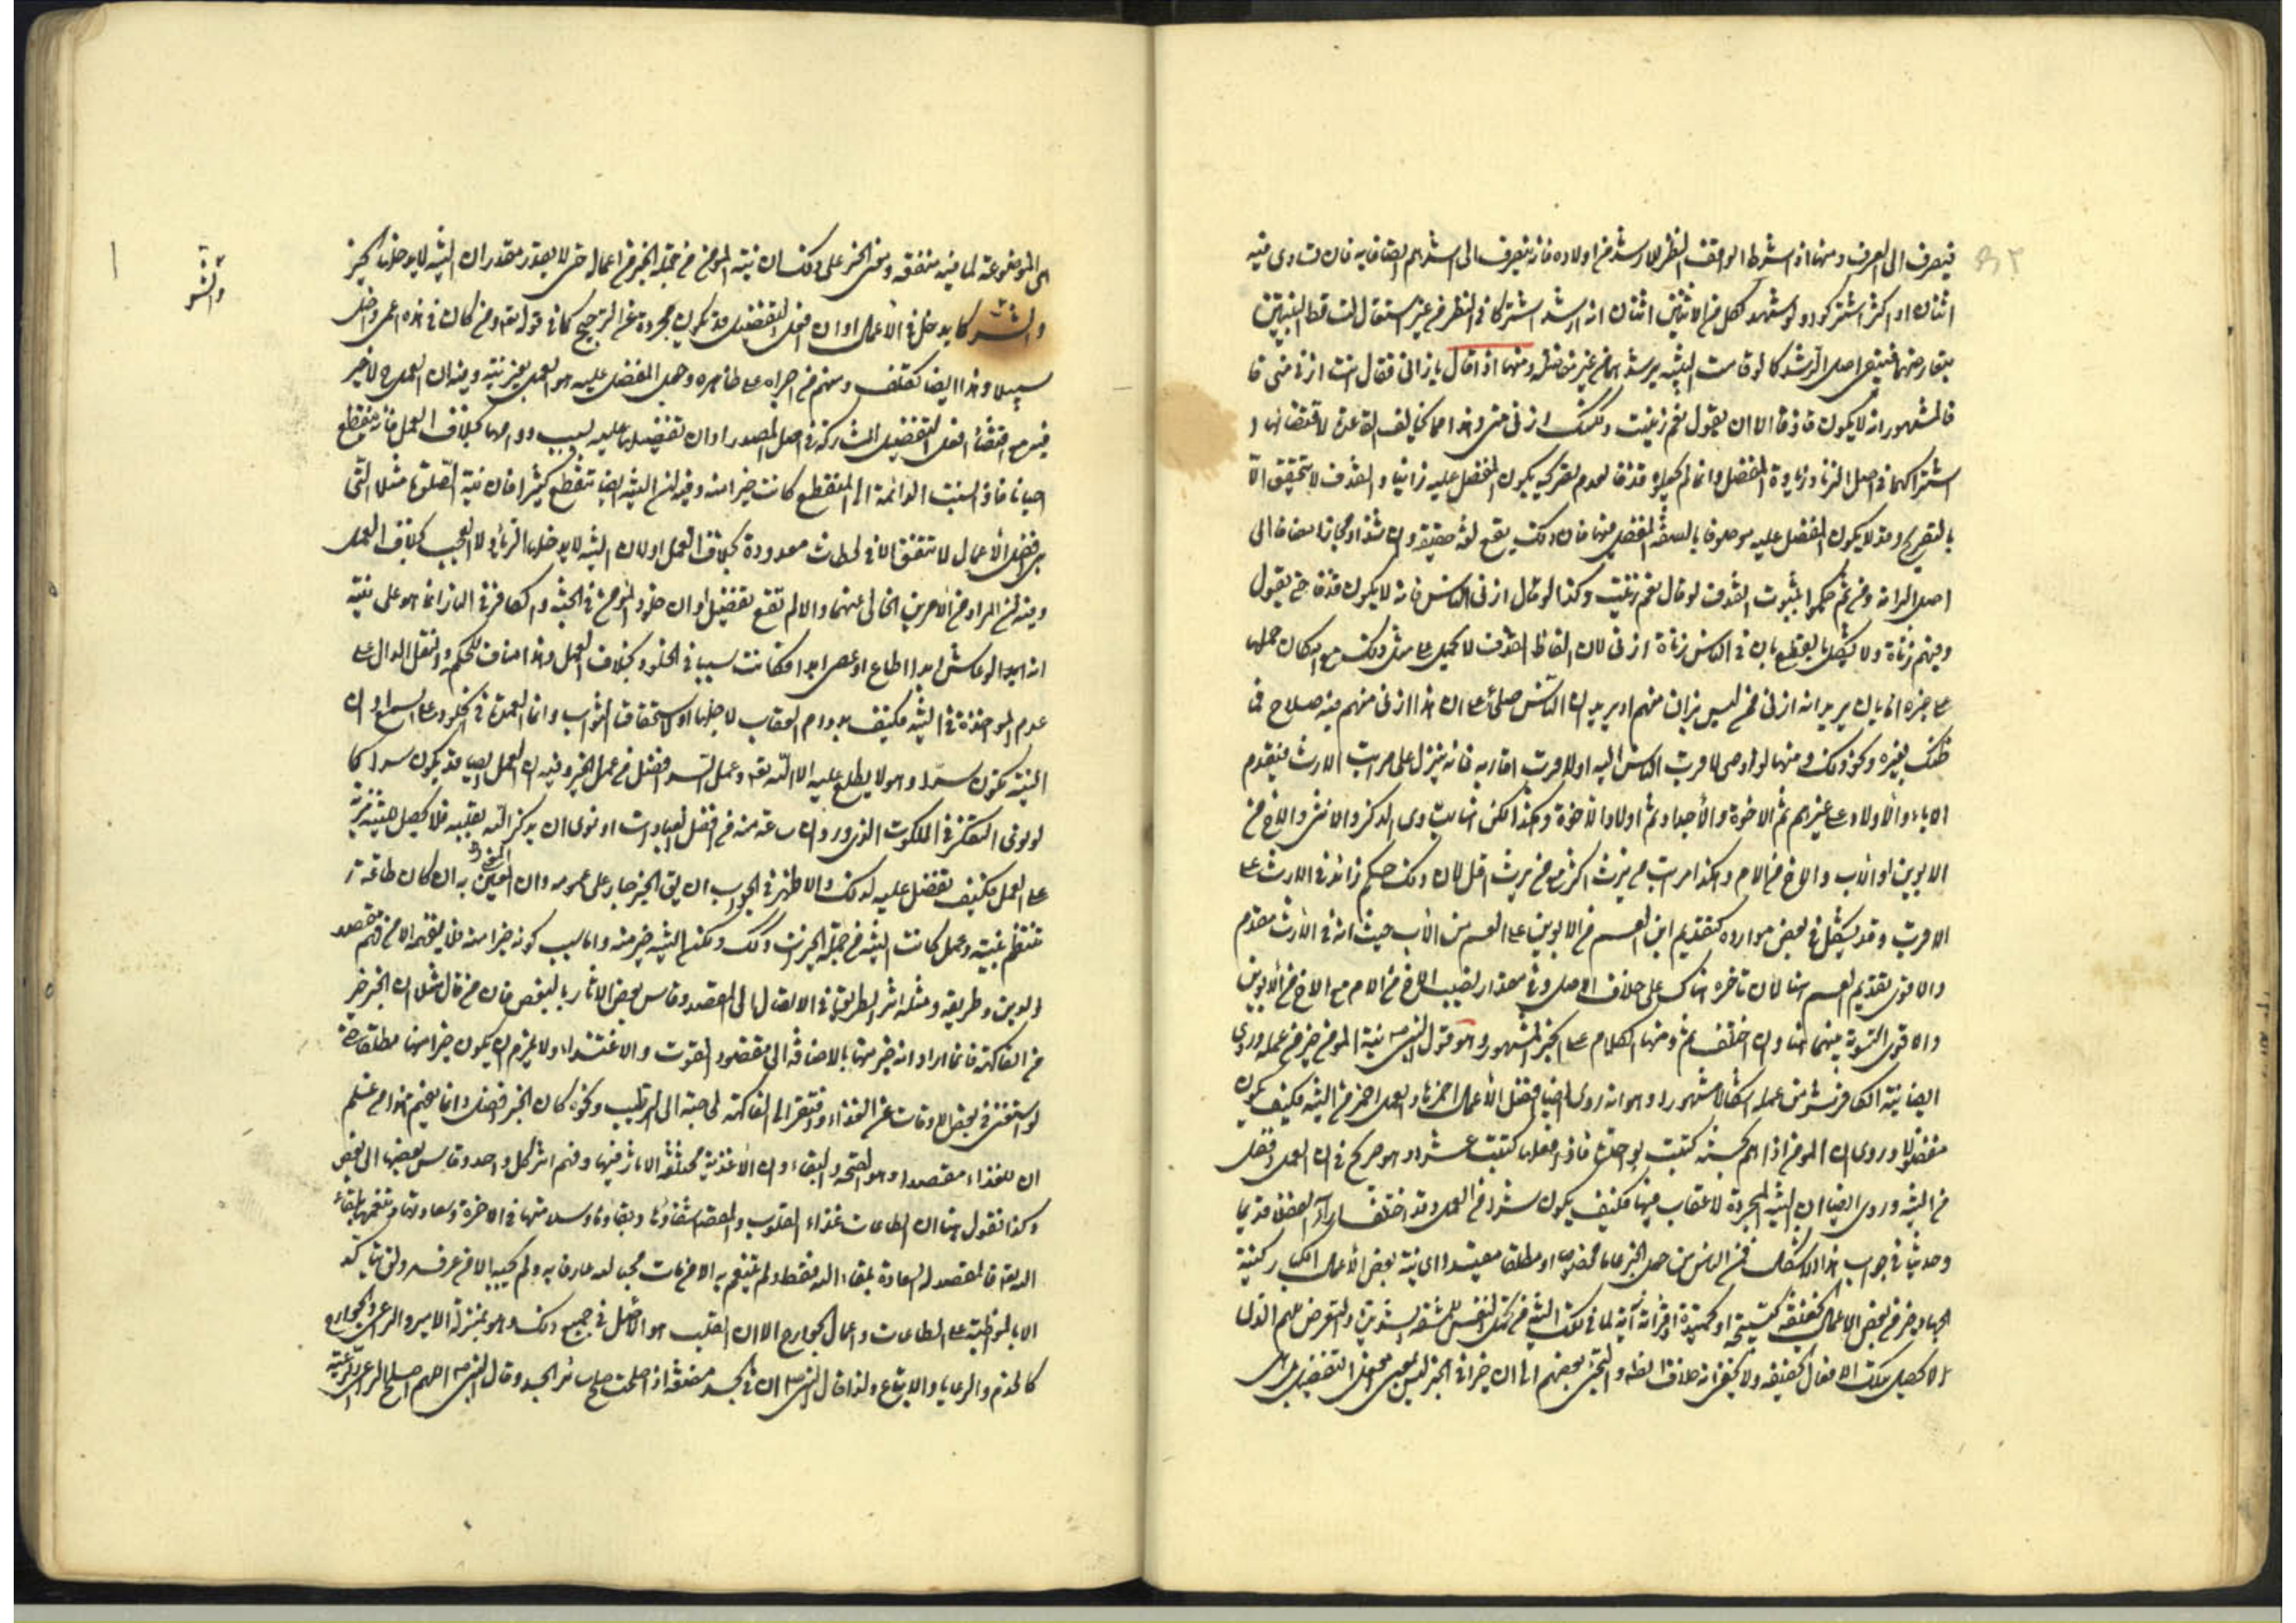 فينصرف الى العرف ومنها اذا شرط الواقف النظر للارشد من اولاده فانه ينصرف الى اشدهم اتصافا به فان تساوى فيه
اثنان او اكثر اشتركوا ولو شهد لكل من الاثنين اثنان انه ارشد اشتركا في النظر من غير استقلال لتساقط البينتين
بتعارضهما فيبقى اصل الرشد كما لو قامت البينة برشدهما من غير مفاضلة ومنها اذا قال يا زاني فقال انت ازنى مني
فالمشهور انه لا يكون قاذفا الا ان يقول نعم زنيت ولكنك ازنى مني وهذا مما يخالف القاعدة لاقتضائها
اشتراكهما في اصل الزنا وزيادة المفضل وانما لم يجعلوه قذفا لعدم تصريحه بكون المفضل عليه زانيا والقذف لا يتحقق الا
بالتصريح وقد لا يكون المفضل عليه موصوفا بالصفة المفضل فيها فان ذلك يقع لغة حقيقة وان شذ او مجازا مضافا الى
اصل البراءة ومن ثم حكموا بثبوت القذف لو قال نعم زنيت وكذا لو قال ازنى الناس فانه لا يكون قذفا حتى يقول
وفيهم زناة ولا يشكل بالقطع بان في الناس زناة ازنى لان الفاظ القذف لا تحمل على مثل ذلك مع امكان حملها
على غيره اما بان يريد انه ازنى ممن ليس بزان منهم او يريد ان الناس صلحاء
ونحو ذلك ومنها لو اوصى لاقرب الناس اليه او لاقرب اقاربه فانه ينزل على مراتب الارث فيقدم
الاباء والاولاد على غيرهم ثم الاخوة والاجداد ثم اولاد الاخوة وهكذا لكن هنا يتساوى الذكر والانثى والاخ من
الابوين او الاب والاخ من الام وهكذا مراتب من يرث اكثر مع من يرث اقل لان ذلك حكم زائد في الارث على
الاقرب وقد يشكل في بعض موارده كتقديم ابن العم من الابوين على العم من الاب حيث انه في الارث مقدم
والاقوى تقديم العم هنا لان تاخره هناك على خلاف الاصل وفي مقدار نصيب الاخ من الام مع الاخ من الابوين
والاقوى التسوية بينهما هنا وان اختلف ثم ومنها الكلام على الخبر المشهور وهو قول النبي ص نية المؤمن خير من عمله وروى
ايضا نية الكافر شر من عمله اشكالا مشهورا وهو انه روى ايضا افضل الاعمال احمزها والعمل احمز من النية فكيف يكون
مفضولا وروى ان المؤمن اذا هم بحسنة كتبت بواحدة فاذا فعلها كتبت عشرا وهو صريح في ان العمل افضل
من النية وروى ايضا ان النية المجردة لا عقاب فيها فكيف يكون شرا من العمل وقد اختلف اراء الفضلاء قديما
وحديثا في جواب هذا الاشكال فمن الناس من جعل الخبر عاما مخصوصا او مطلقا مقيدا اي نية بعض الاعمال الكبار كنية
الجهاد خير من بعض الاعمال الخفيفة كتسبيحة او تحميدة او قراءة آية لما في تلك النية من تحمل النفس للمشقة الشديدة والتعرض للهم الذي
لا يحصل بتلك الافعال الخفيفة ولا يخفى انه خلاف الظاهر والتجئ بعضهم الى ان خيرا في الخبر ليس بمعنى افعل التفضيل بل هى
الموضوعة لما فيه منفعة ومعنى الخبر على ذلك ان نية المؤمن من جملة الخير من اعماله حتى لا يقدر مقدر ان النية لا يدخلها الخير
والشر كما يدخل في الاعمال او ان افعل التفضيل قد يكون مجردة عن الترجيح كما في قوله تعالى ومن كان في هذه اعمى واضل
سبيلا وهذا ايضا تكلف ومنهم من اجراه على ظاهره وجعل المفضل عليه هو العمل بغير نية وفيه ان العمل ح لا خير
فيه مع اقتضاء افعل التفضيل المشاركة في اصل المصدر او ان تفضيلها عليه بسبب دوامها بخلاف العمل فانه ينقطع
احيانا فاذا نسبت الدائمة الى المنقطع كانت خيرا منه وفيه ان النية ايضا تنقطع كثيرا فان نية الصلوة مثلا التي
هى افضل الاعمال لا تتفق الا في لحظات معدودة بخلاف العمل او لان النية لا يدخلها الرياء ولا العجب بخلاف العمل
وفيه ان المراد من الامرين الخالي عنهما والا لم تقع تفضيل او ان خلود المؤمن في الجنة والكافر في النار انما هو على نية
انه ابدا لو عاش ابدا اطاع او عصى ابدا فكانت سببا في الخلود بخلاف العمل وهذا مناف للحكم والنقل الدال على
عدم المؤاخذة في النية فكيف بدوام العقاب لاجلها او لاستحقاق الثواب وانما العمدة في الخلود على السمع او ان
النية تكون سرا وهو لا يطلع عليه الا الله تعالى وعمل السر افضل من عمل الجهر وفيه ان العمل ايضا قد يكون سرا كما
لو نوى التفكر في الملكوت الذي ورد ان ساعة منه من افضل العبادات او نوى ان يذكر الله بقلبه فلا يحصل للنية مزية
على العمل فكيف تفضل عليه لذلك والاظهر في الجواب ان يق الخبر جار على عمومه وان المعنى به ان كان طاعة
تنتظم بنية وعمل كانت النية من جملة الخيرات وكك ولكن النية خير منه واما سبب كونه خيرا منه فلا يفهمه الا من فهم مقصد
الدين وطريقه ومثله اثر الطريق في الايصال الى المقصد وقاس بعض الاثار بالبعض فان من قال مثلا ان الخبز خير
من الفاكهة فانما اراد انه خير منها بالاضافة الى مقصود القوت والاغتذاء ولا يلزم ان يكون خيرا منها مطلقا حتى
لو استغنى في بعض الاوقات عن الغذاء وافتقر الى الفاكهة لحاجته الى الترطيب ونحوه كان الخبز افضل وانما يفهم هذا من علم
ان للغذاء مقصدا وهو الصحة والبقاء وان الاغذية مختلفة الاثار فيها وفهم اثر كل واحد وقاس بعضها الى بعض
وكذا نقول هنا ان الطاعات غذاء القلوب والمقصد شفاؤها وبقاؤها وسلامتها في الاخرة وسعادتها وتنعمها بلقاء
الله تعالى فالمقصد لذ السعادة بلقاء الله فقط ولم يتنعم به الا من مات محبا لله عارفا به ولم يحبه الا من عرفه ولن يتاكد
الا بالمواظبة على الطاعات واعمال الجوارح الا ان القلب هو الاصل في جميع ذلك وهو بمنزلة الامير والراعي والجوارح
كالخدم والرعايا والاتباع ولذا قال النبي ص ان في الجسد مضغة اذا صلحت صلح سائر الجسد وقال النبي ص اللهم اصلح الراعي والرعية
والشر